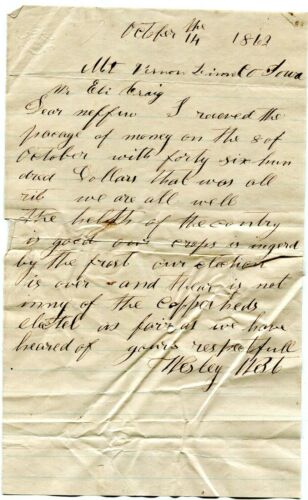 October the 14 1862
Mt Vernon Linn Co Iowa
Mr Eli Craig
Dear neffew I receved the
pacage of money on the 8 of
October with forty six hun
dred Dollars that was all
rit we are all well
the helth of the contry
is good our crops is ingerd
by the frost our election
is over and thear is not
inny of the copperheds
elected as fair as we have
heared of yours respectfull
Wesley West